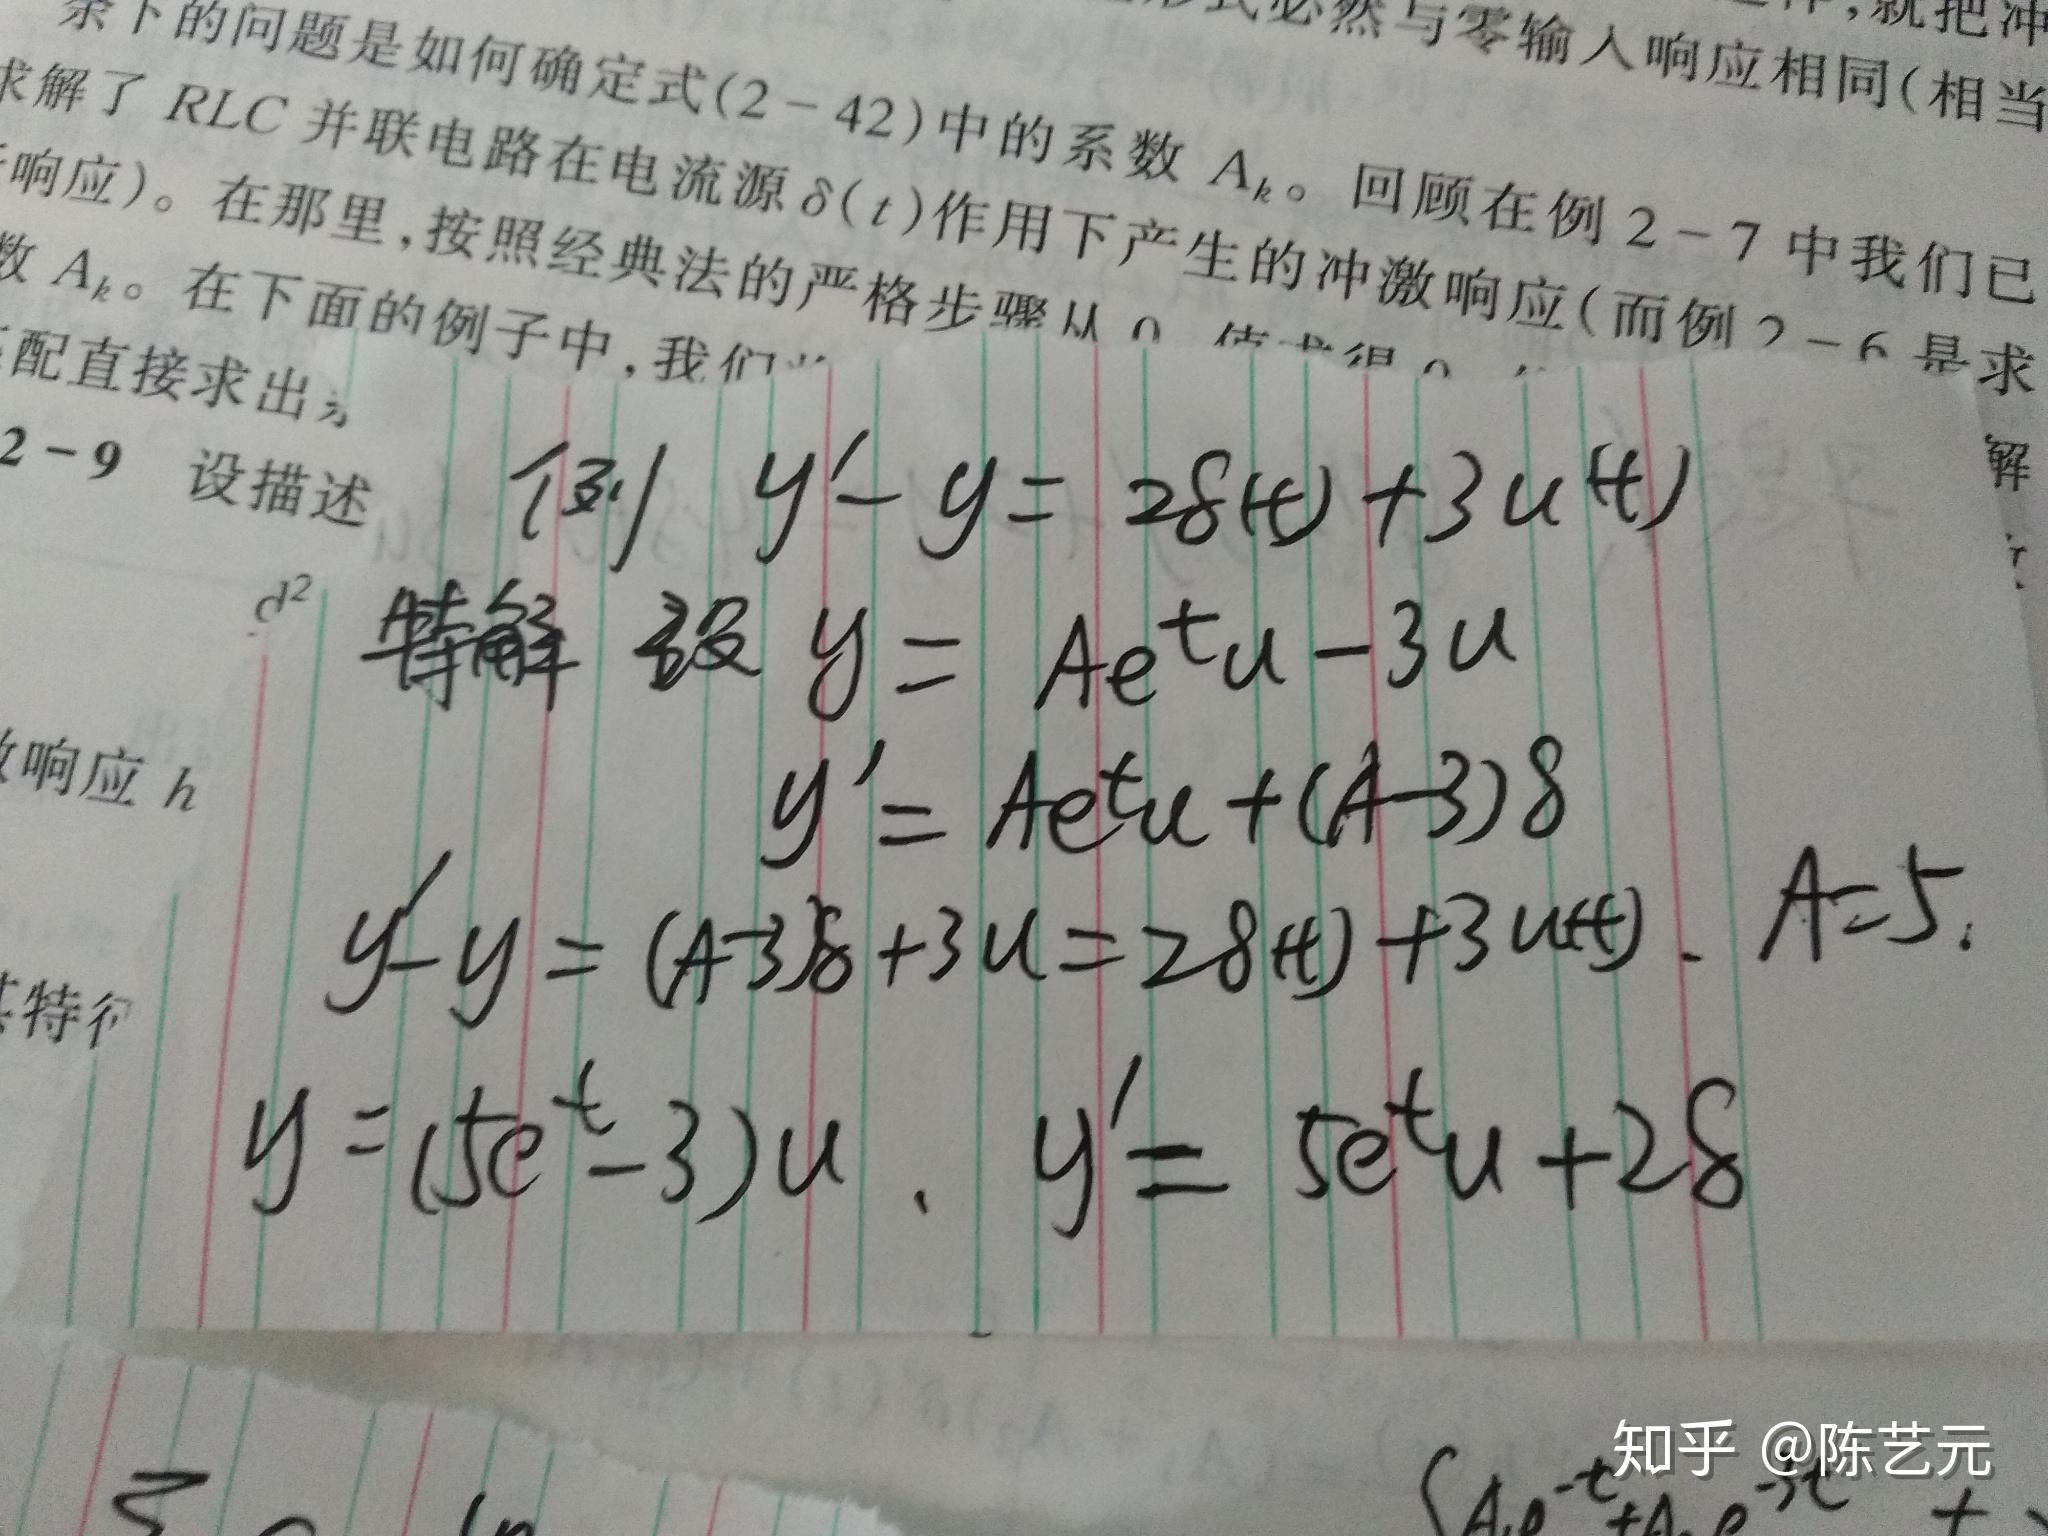 余下的问题是如何确定式(2-42)中的系数 Aₖ。回顾在例 2-7 中我们已
形式必然与零输入响应相同(相当
就把冲
求解了 RLC 并联电路在电流源 δ(t)作用下产生的冲激响应(而例 2-6 是求
响应)。在那里,按照经典法的严格步骤从 0 值求得 0
数 Aₖ。在下面的例子中,我们
匹配直接求出
2-9 设描述
解
d²
响应 h
其特征
例 y′-y=2δ(t)+3u(t)
特解 设 y=Aeᵗu-3u
y′=Aeᵗu+(A-3)δ
y′-y=(A-3)δ+3u=2δ(t)+3u(t). A=5.
y=(5eᵗ-3)u. y′=5eᵗu+2δ
知乎 @陈艺元